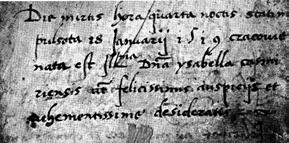 Die m̃rtis hora quarta noctis statim
pulsata 18 Januarii 1519 cracovie
nata est Illma Dna ysabella
riensis felicissimis auspicijs et
vehementissime desiderata